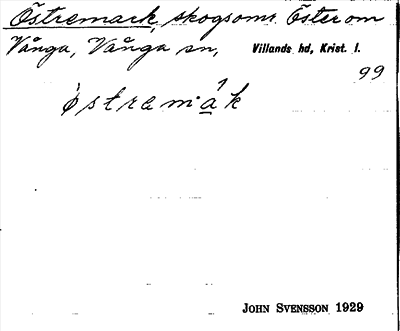 Östremark, skogsomr. Öster om
Vånga, Vånga sn, Villands hd, Krist. l.
99
östremåk
JOHN SVENSSON 1929